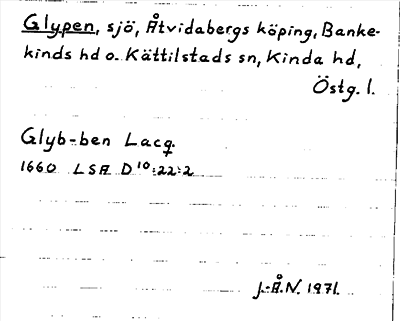 Glypen, sjö, Åtvidabergs köping, Banke-
kinds hd o. Kättilstads sn, Kinda hd,
Östg. l.
Glyb-ben Lacq.
1660 LSA D 10:22:2
J.-Å.N. 1971.